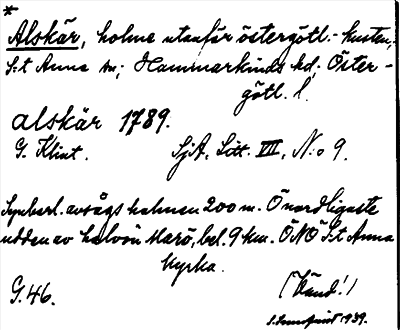 *
Alskär, holme utanför östergötl.-kusten,
S:t Anna sn; Hammarkinds hd; Öster-
götl. l.
alskär 1789.
G. Klint. SjA, Litt. VII, N:o 9.
avsågs holmen 200 m. Ö nordligaste
udden av halvön Marö, bel. 9 km. ÖNÖ S:t Anna
kyrka.
G. 46. (Vänd!)
1939.